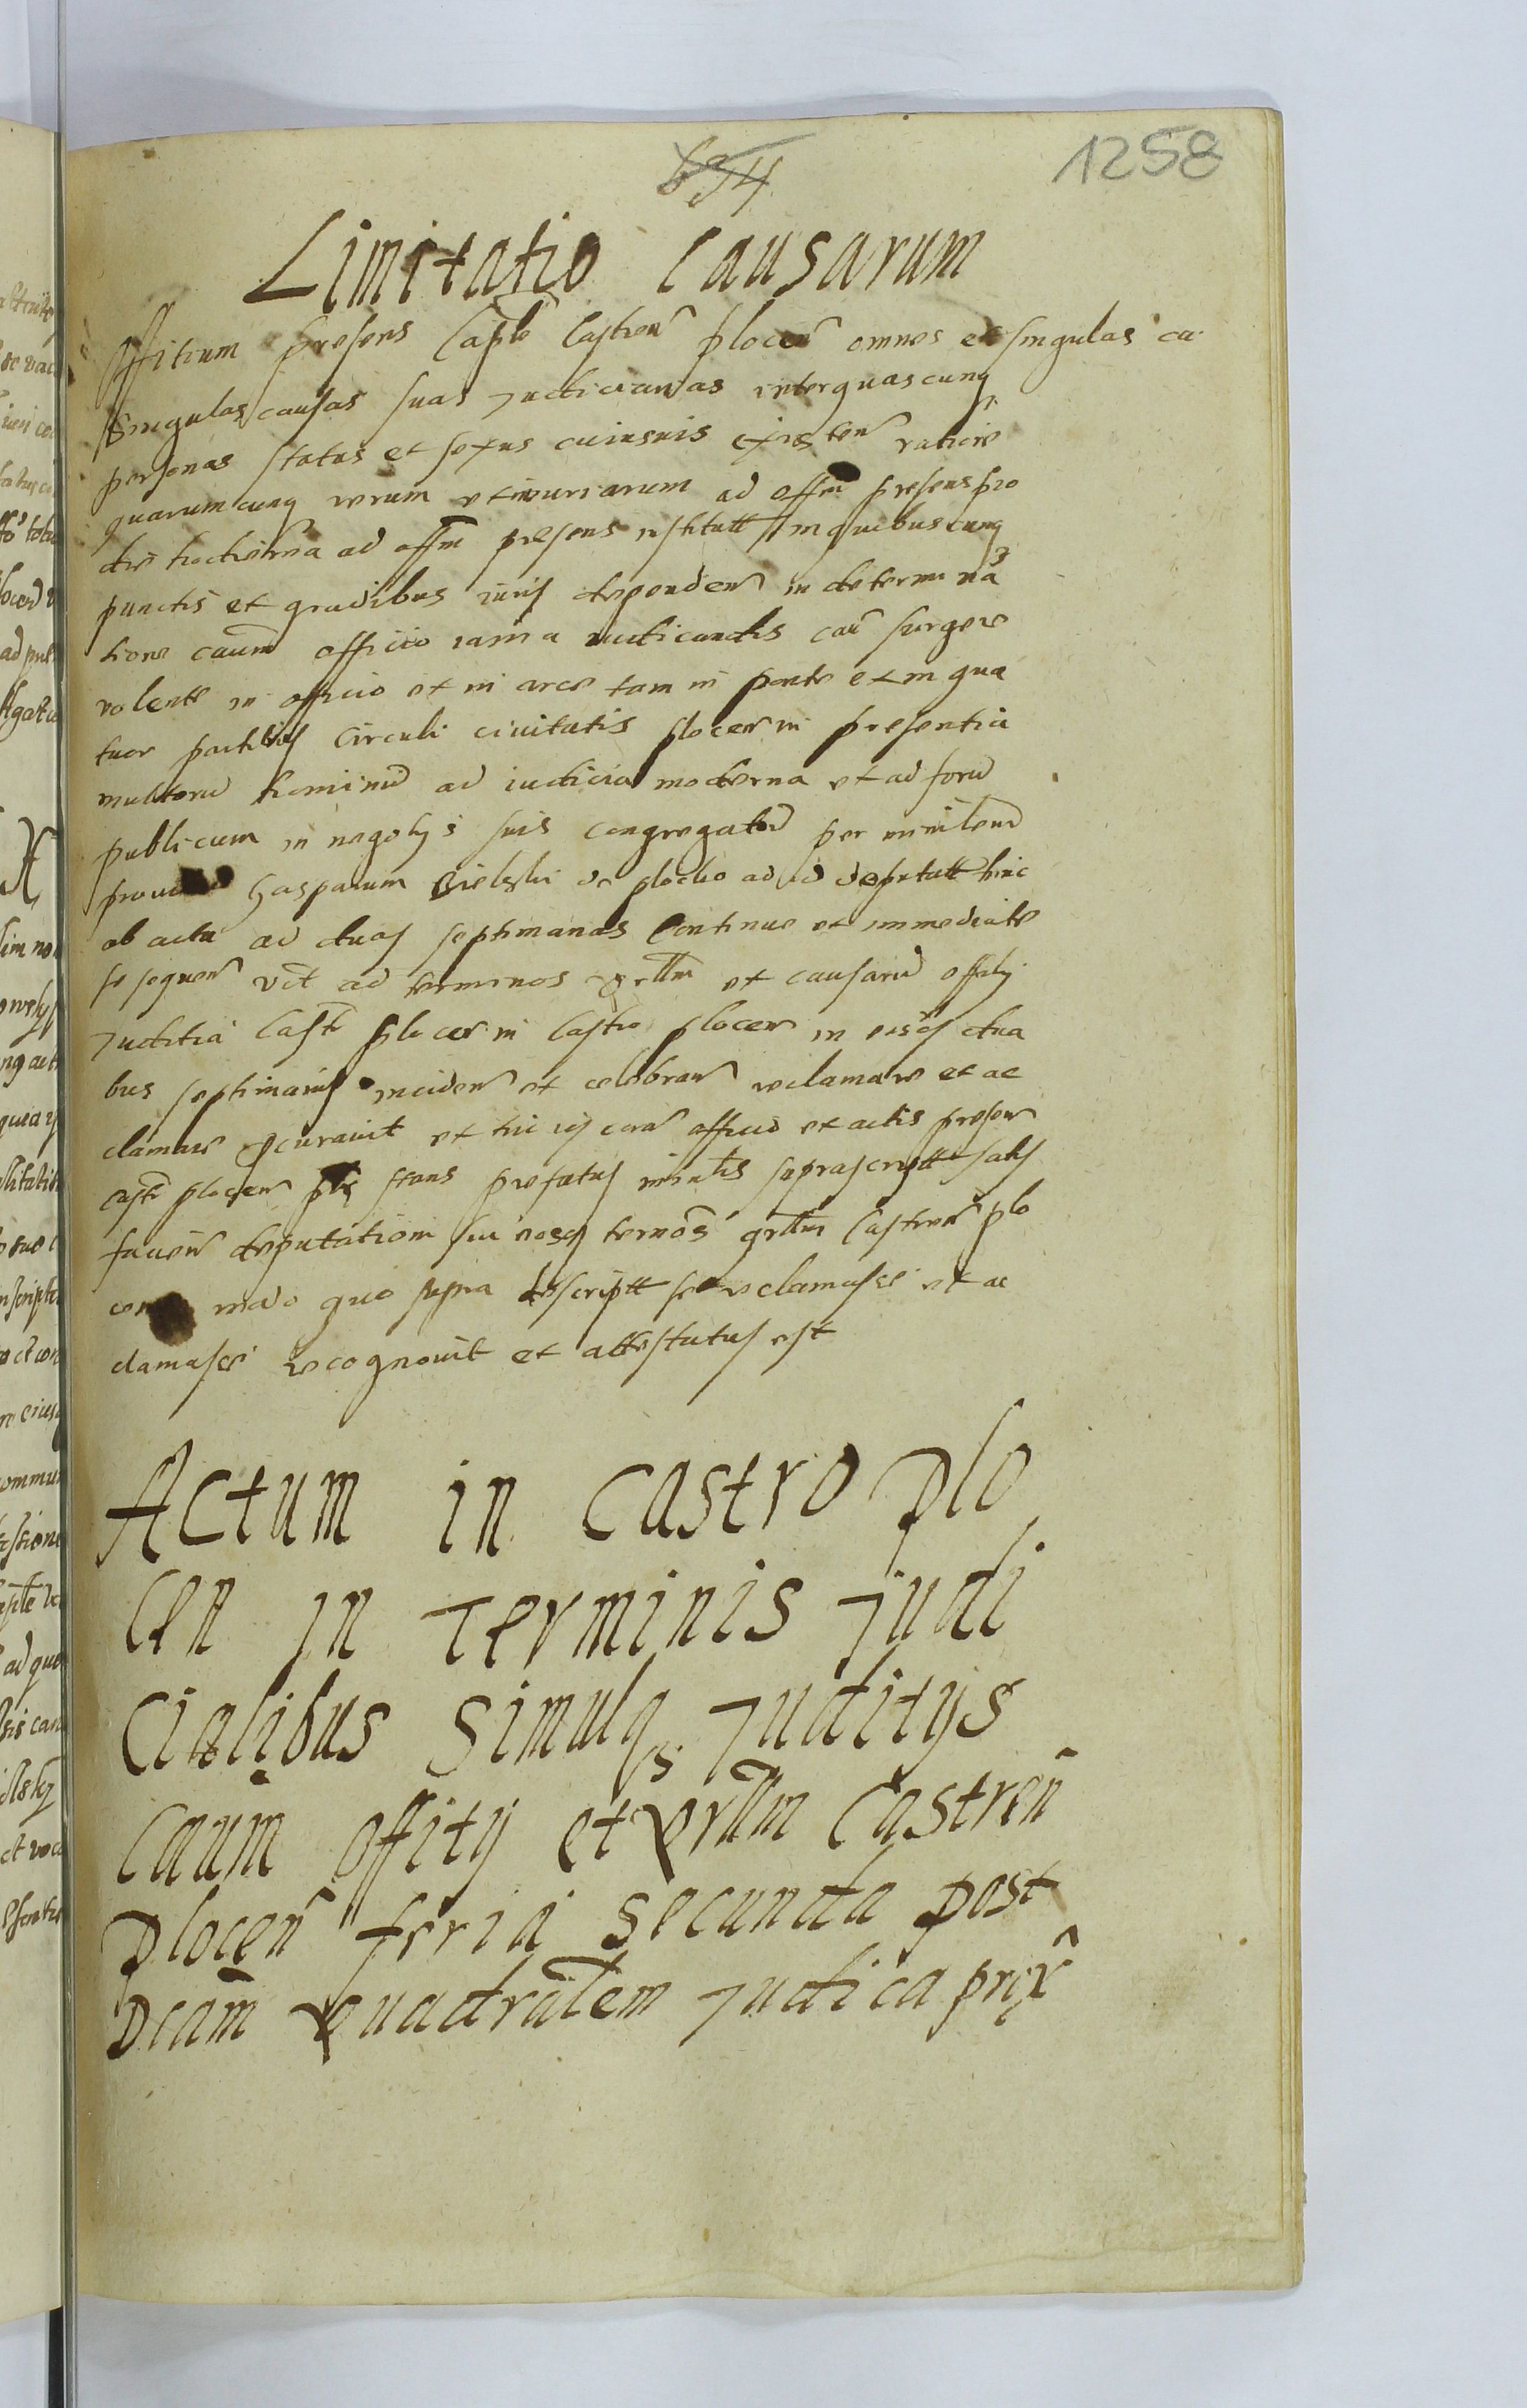 1258
634
Limitatio Causarum
Offitium presens Caple Castren plocen omnes et singulas ca
singulas causas suas Judiciarias inter quascunq
personas status et sexus cuiusuis existen ratione
quarumcunq rerum et iniuriarum ad offm presens pro
die hodierna ad offm presens institutt in quibuscunq
punctis et gradibus iuris dependen in determina
tione caum officio iam a iudicandis cau surgere
volente in officio et in arce tam in ponte et in qua
tuor partibus Circuli ciuitatis plocen in presentia
multoru hominu ad iudicia moderna et ad foru
publicum in negotys suis congregatoru per ministeru
prouidu Gasparum Bielski de plocko ad id deputatt hinc
ab actu ad duas septimanas Continue et immediate
se sequen vlt ad terminos qrllm et causaru offity
Juditia Castr plocen in Castro plocen in eisdq dua
bus septimanis inciden et celebran reclamare et ac
clamare pcurauit et hic iq coram officio et actis presen
castr plocen stans prefatus minlis suprascriptt satis
facien deputationi sue eosq termos qrllm Castren plo
cen modo quo supra descriptt se reclamasse et ac
clamasse recognouit et attestatus est
Actum in Castro Plo
Cen in Terminis Judi
Cialibus simulq Juditys
Caum offity et Qrllm Castren
Plocen feria secunda post
Dcam Quadralem Judica prox